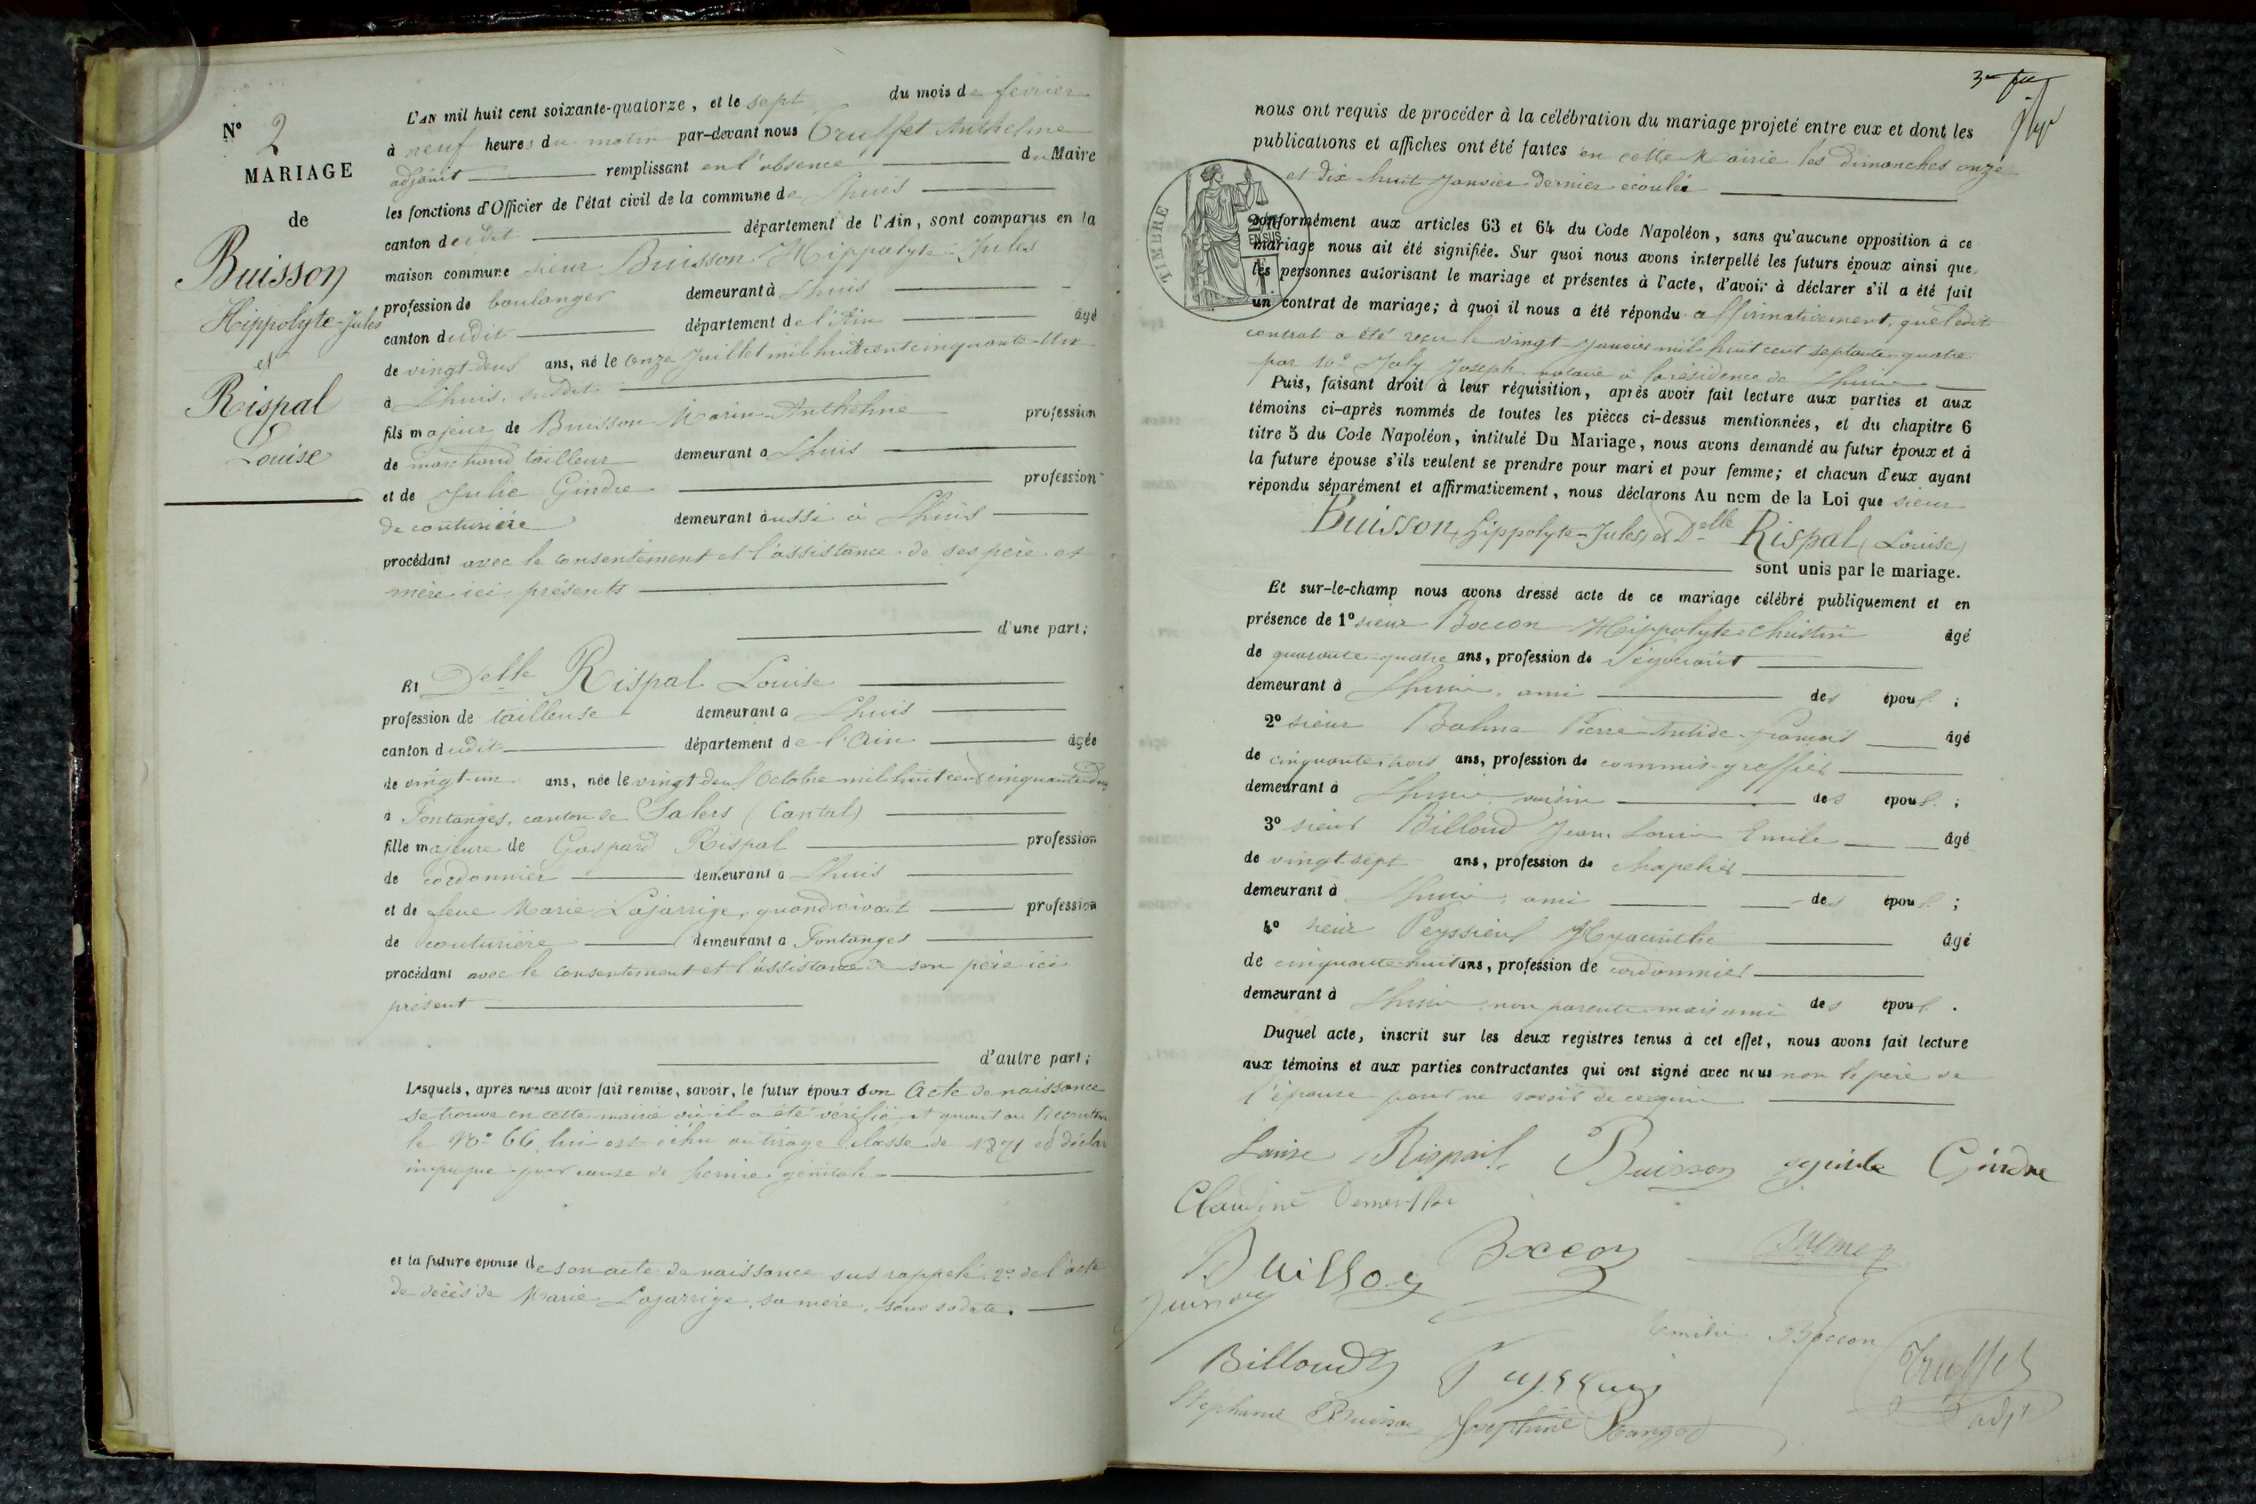 N° 2
MARIAGE
de
Buisson
Hippolyte-Jules
et
Rispal
Louise
L'AN mil huit cent soixante-quatorze, et le sept du mois de février
à neuf heures du matin par-devant nous Truffet Anthelme
adjoint remplissant en l'absence du Maire
les fonctions d'Officier de l'état civil de la commune de Lhuis
canton dudit département de l'Ain, sont comparus en la
maison commune sieur Buisson Hippolyte-Jules
profession de boulanger demeurant à Lhuis
canton dudit département de l'Ain âgé
de vingt-deux ans, né le onze Juillet mil huit cent cinquante-un
à Lhuis, susdit
fils majeur de Buisson Marin-Anthelme profession
de marchand tailleur demeurant à Lhuis
et de Julie Gindre profession
de couturière demeurant aussi à Lhuis
procédant avec le consentement et l'assistance de ses père et
mère ici présents
d'une part;
Et Delle Rispal Louise
profession de tailleuse demeurant à Lhuis
canton dudit département de l'Ain âgée
de vingt-un ans, née le vingt deux Octobre mil huit cent cinquante deux
à Fontanges, canton de Salers (Cantal)
fille majeure de Gaspard Rispal profession
de cordonnier demeurant à Lhuis
et de feue Marie Lajarrige, quand vivait profession
de couturière demeurant à Fontanges
procédant avec le consentement et l'assistance de son père ici
présent
d'autre part;
Lesquels, après nous avoir fait remise, savoir, le futur époux son Acte de naissance
se trouve en cette mairie où il a été vérifié et quant au
le N° 66 lui est échu au tirage classe de 1871 et déclaré
impropre pour cause de hernie
et la future épouse de son acte de naissance sus rappelé 2° de l'acte
de décès de Marie Lajarrige, sa mère, sous sa date.
nous ont requis de procéder à la célébration du mariage projeté entre eux et dont les
publications et affiches ont été faites en cette Mairie les dimanches onze
et dix-huit Janvier dernier écoulé
TIMBRE
2/10
EN SUS
conformément aux articles 63 et 64 du Code Napoléon, sans qu'aucune opposition à ce
mariage nous ait été signifiée. Sur quoi nous avons interpellé les futurs époux ainsi que
les personnes autorisant le mariage et présentes à l'acte, d'avoir à déclarer s'il a été fait
un contrat de mariage; à quoi il nous a été répondu affirmativement, que ledit
contrat a été reçu le vingt Janvier mil huit cent septante-quatre
par Me Joly Joseph notaire à la résidence de Lhuis
Puis, faisant droit à leur réquisition, après avoir fait lecture aux parties et aux
témoins ci-après nommés de toutes les pièces ci-dessus mentionnées, et du chapitre 6
titre 5 du Code Napoléon, intitulé Du Mariage, nous avons demandé au futur époux et à
la future épouse s'ils veulent se prendre pour mari et pour femme; et chacun d'eux ayant
répondu séparément et affirmativement, nous déclarons Au nom de la Loi que sieur
Buisson, Hippolyte-Jules, et Delle Rispal (Louise)
sont unis par le mariage.
Et sur-le-champ nous avons dressé acte de ce mariage célébré publiquement et en
présence de 1° sieur Boccon Hippolyte Christin âgé
de quarante-quatre ans, profession de Négociant
demeurant à Lhuis, ami des époux;
2° sieur Balme Pierre Antide-François âgé
de cinquante-trois ans, profession de commis-greffier
demeurant à Lhuis voisin des époux;
3° sieur Billoud Jean Louis Emile âgé
de vingt-sept ans, profession de chapelier
demeurant à Lhuis, ami des époux;
4° sieur Peyssieux Hyacinthe âgé
de cinquante-huit ans, profession de cordonnier
demeurant à Lhuis non parents mais ami des époux.
Duquel acte, inscrit sur les deux registres tenus à cet effet, nous avons fait lecture
aux témoins et aux parties contractantes qui ont signé avec nous non le père de
l'épouse pour ne savoir de ce requis
Louise Rispail Buisson Gindre
Claudine
Buisson Boccon Balme
Emilie Boccon
Billoud Truffet
adjt
Stephanie Buisson Josephine